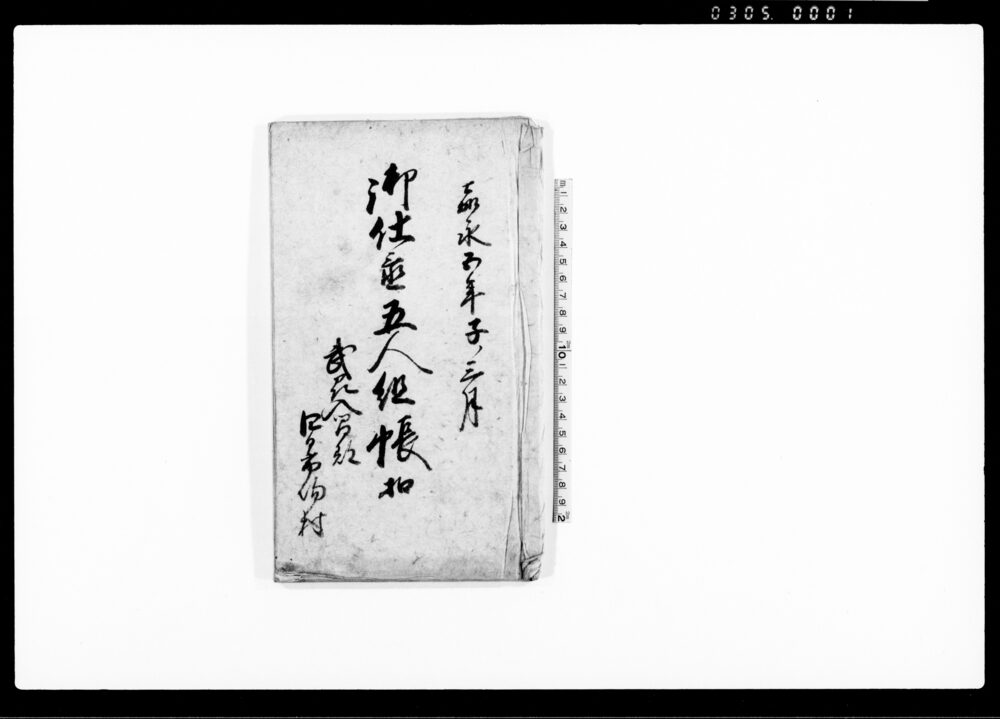 0305. 0001
嘉永五年子三月
御仕置五人組帳扣
武州入間郡
四日市場村
1 2 3 4 5 6 7 8 9 10 1 2 3 4 5 6 7 8 9 2